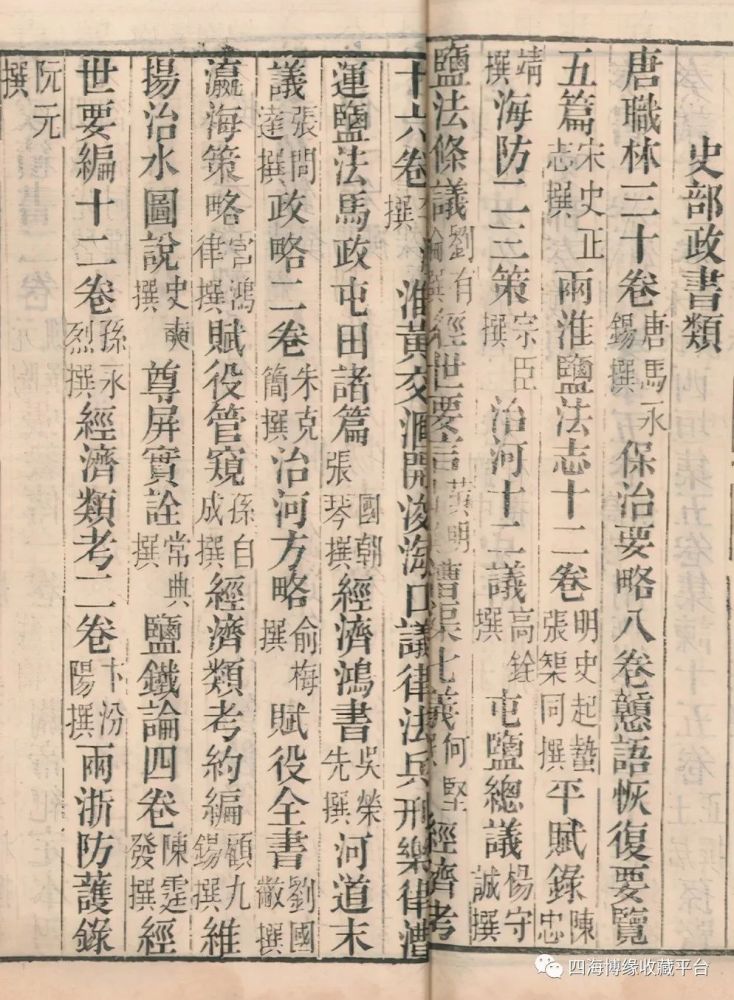 史部政書類
唐職林三十卷唐馬永錫撰保治要略八卷戇語恢復要覽
五篇宋史正志撰兩淮鹽法志十二卷明史起蟄張榘同撰平賦錄陳忠
靖撰海防二三策宗臣撰治河十二議高銓撰屯鹽總議楊守誠撰
鹽法條議劉有綸撰經世要言黃明撰漕渠七議何堅撰經濟考
十六卷撰淮黃交滙開浚海口議律法兵刑樂律漕
運鹽法馬政屯田諸篇國朝張琴撰經濟鴻書吳榮先撰河道末
議張問達撰政略二卷朱克簡撰治河方略俞梅撰賦役全書劉國黻撰
瀛海策略宮鴻律撰賦役管窺孫自成撰經濟類考約編顧九錫撰維
揚治水圖說史奭撰尊屏實詮常典撰鹽鐵論四卷陳霆發撰經
世要編十二卷孫永烈撰經濟類考二卷卞汾陽撰兩浙防護錄
阮元撰
四海博缘收藏平台